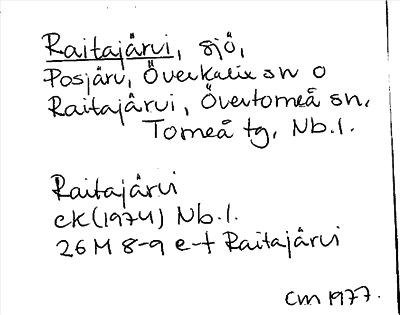 Raitajärvi, sjö,
Posjärv, Överkalix sn o
Raitajärvi, Övertorneå sn,
Torneå tg, Nb.l.
Raitajärvi
ek (1974) Nb.l.
26 M 8-9 e-f Raitajärvi
CM 1977.